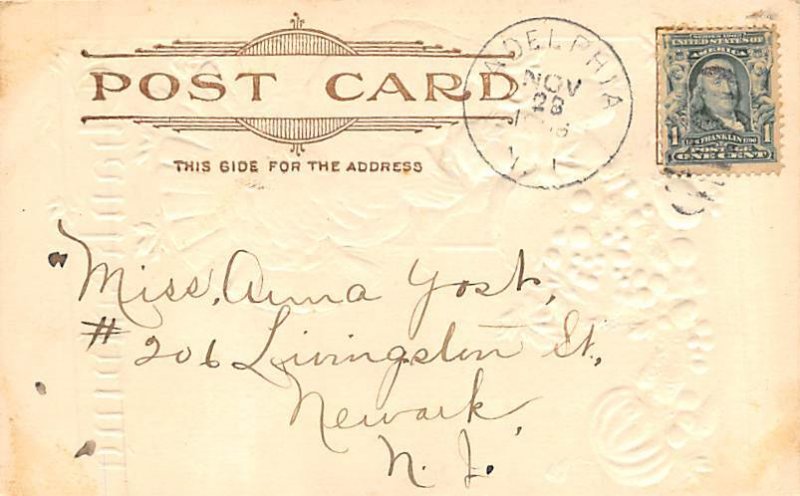 POST CARD
THIS SIDE FOR THE ADDRESS
ADELPHIA
NOV
28
UNITED STATES OF
AMERICA
1 FRANKLIN 1
POSTAGE
ONE CENT
"Miss. Anna Yost,
# 206 Livingston St,
Newark,
N. J.